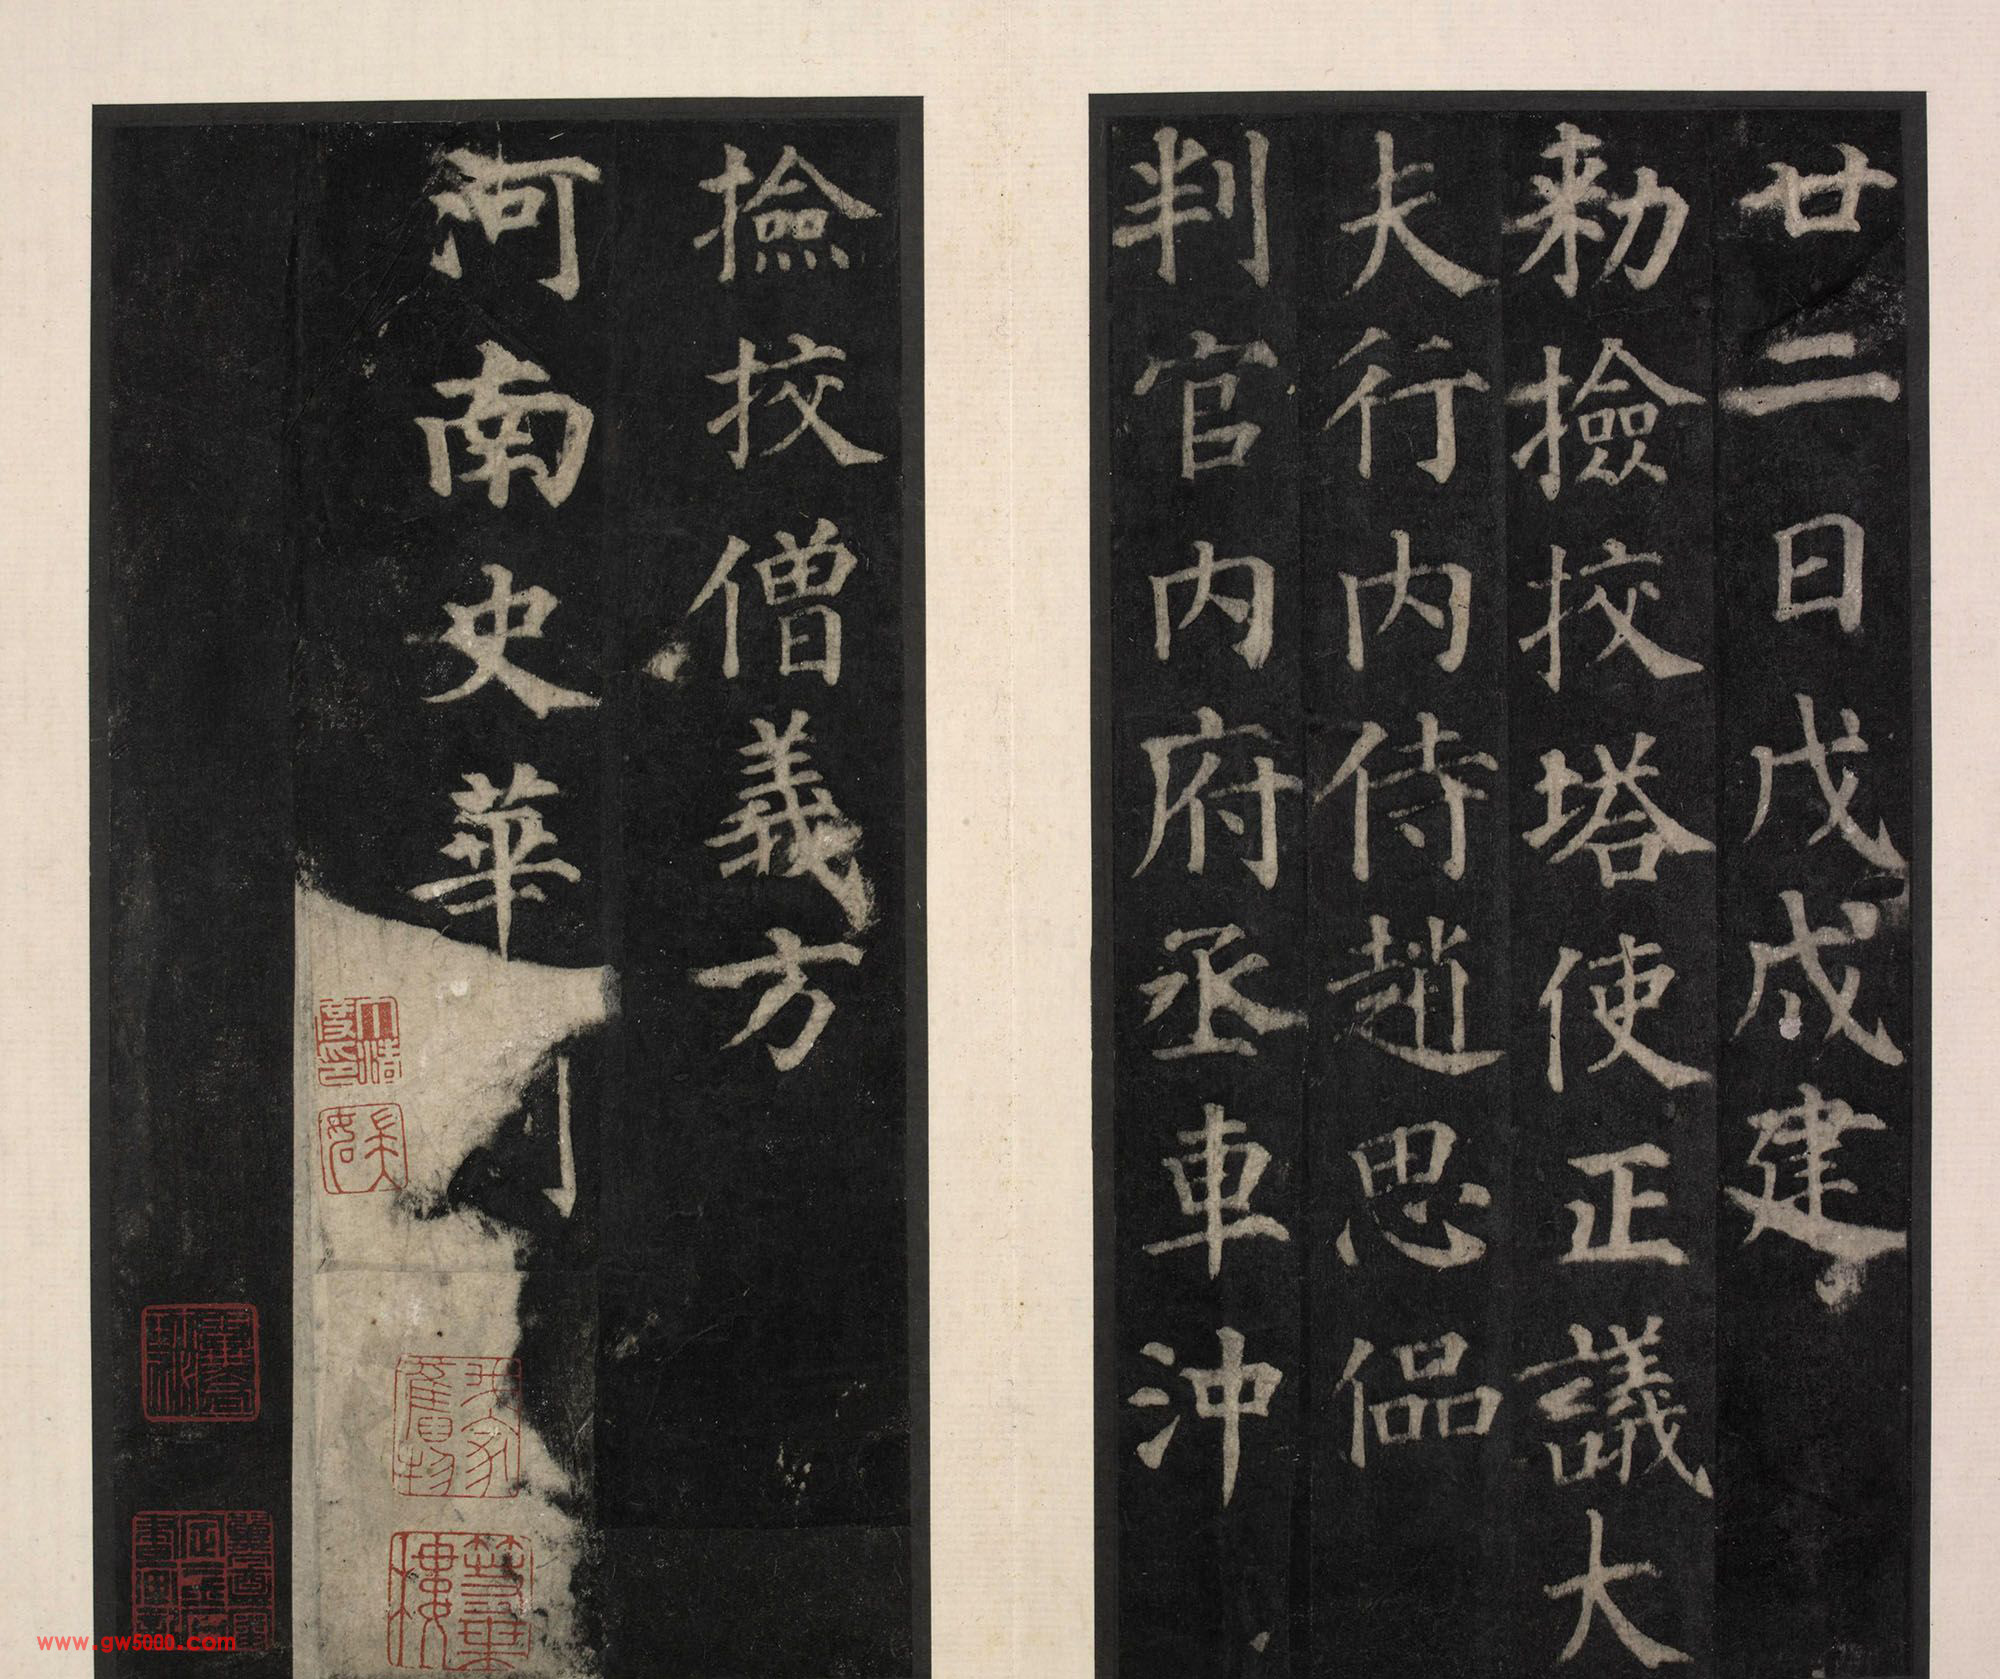 廿二日戊戌建
勑撿挍塔使正議大
夫行内侍趙思偘
判官内府丞車沖
撿挍僧義方
河南史華刻
www.gw5000.com